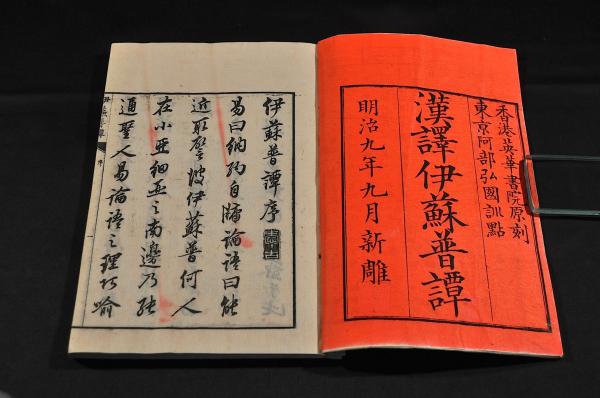 香港英華書院原刻
東京阿部弘國訓點
漢譯伊蘇普譚
明治九年九月新雕
伊蘇普譚序
易曰納約自牖論語曰能
近取譬彼伊蘇普何人
在小亞細亞之南邊乃能
通聖人易論語之理巧喻